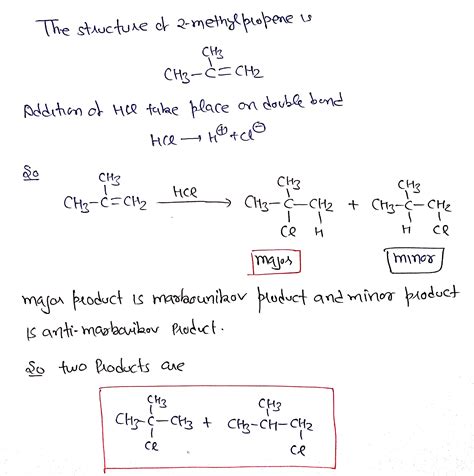 The structure of 2-methylpropene is
CH3
CH3-C=CH2
Addition of HCl take place on double bond
HCl → H⊕ + Cl⊖
So
CH3
CH3-C=CH2 HCl → CH3-C-CH2 + CH3-C-CH2
CH3 CH3
Cl H H Cl
major minor
major product is markounikov product and minor product
is anti-markovikov product.
So two products are
CH3 CH3
CH3-C-CH3 + CH3-CH-CH2
Cl Cl